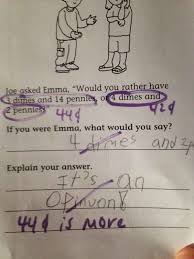 Joe asked Emma, "Would you rather have
3 dimes and 14 pennies, or 4 dimes and
2 pennies"
44¢ 42¢
If you were Emma, what would you say?
4 dimes and 2p
Explain your answer.
It's an
Opinuon
44¢ is more